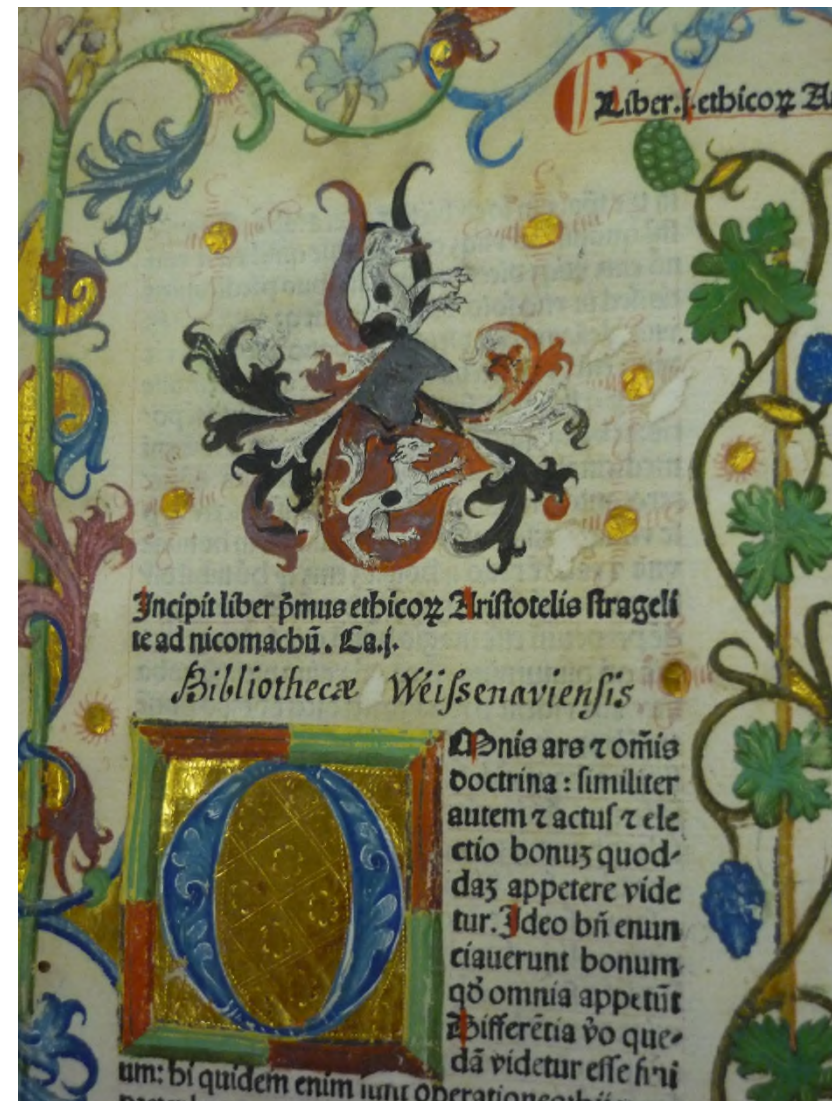 Liber .j. ethicoꝝ A
Incipit liber p̄mus ethicoꝝ Aristotelis strageli
te ad nicomachū. Ca.j.
Bibliothecæ Weissenaviensis
OMnis ars ⁊ om̄is
doctrina : similiter
autem ⁊ actus ⁊ ele
ctio bonuꝫ quod-
daꝫ appetere vide
tur. Ideo bn̄ enun
ciauerunt bonum
qđ omnia appetūt
Differētia v̊o que-
dā videtur esse fini
um: hi quidem enim sunt